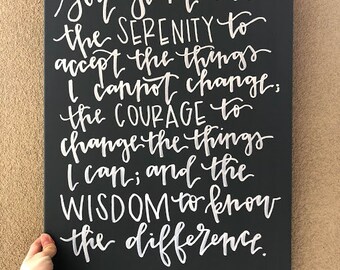 the SERENITY to
accept the things
I cannot change;
the COURAGE to
change the things
I can; and the
WISDOM to know
the difference.